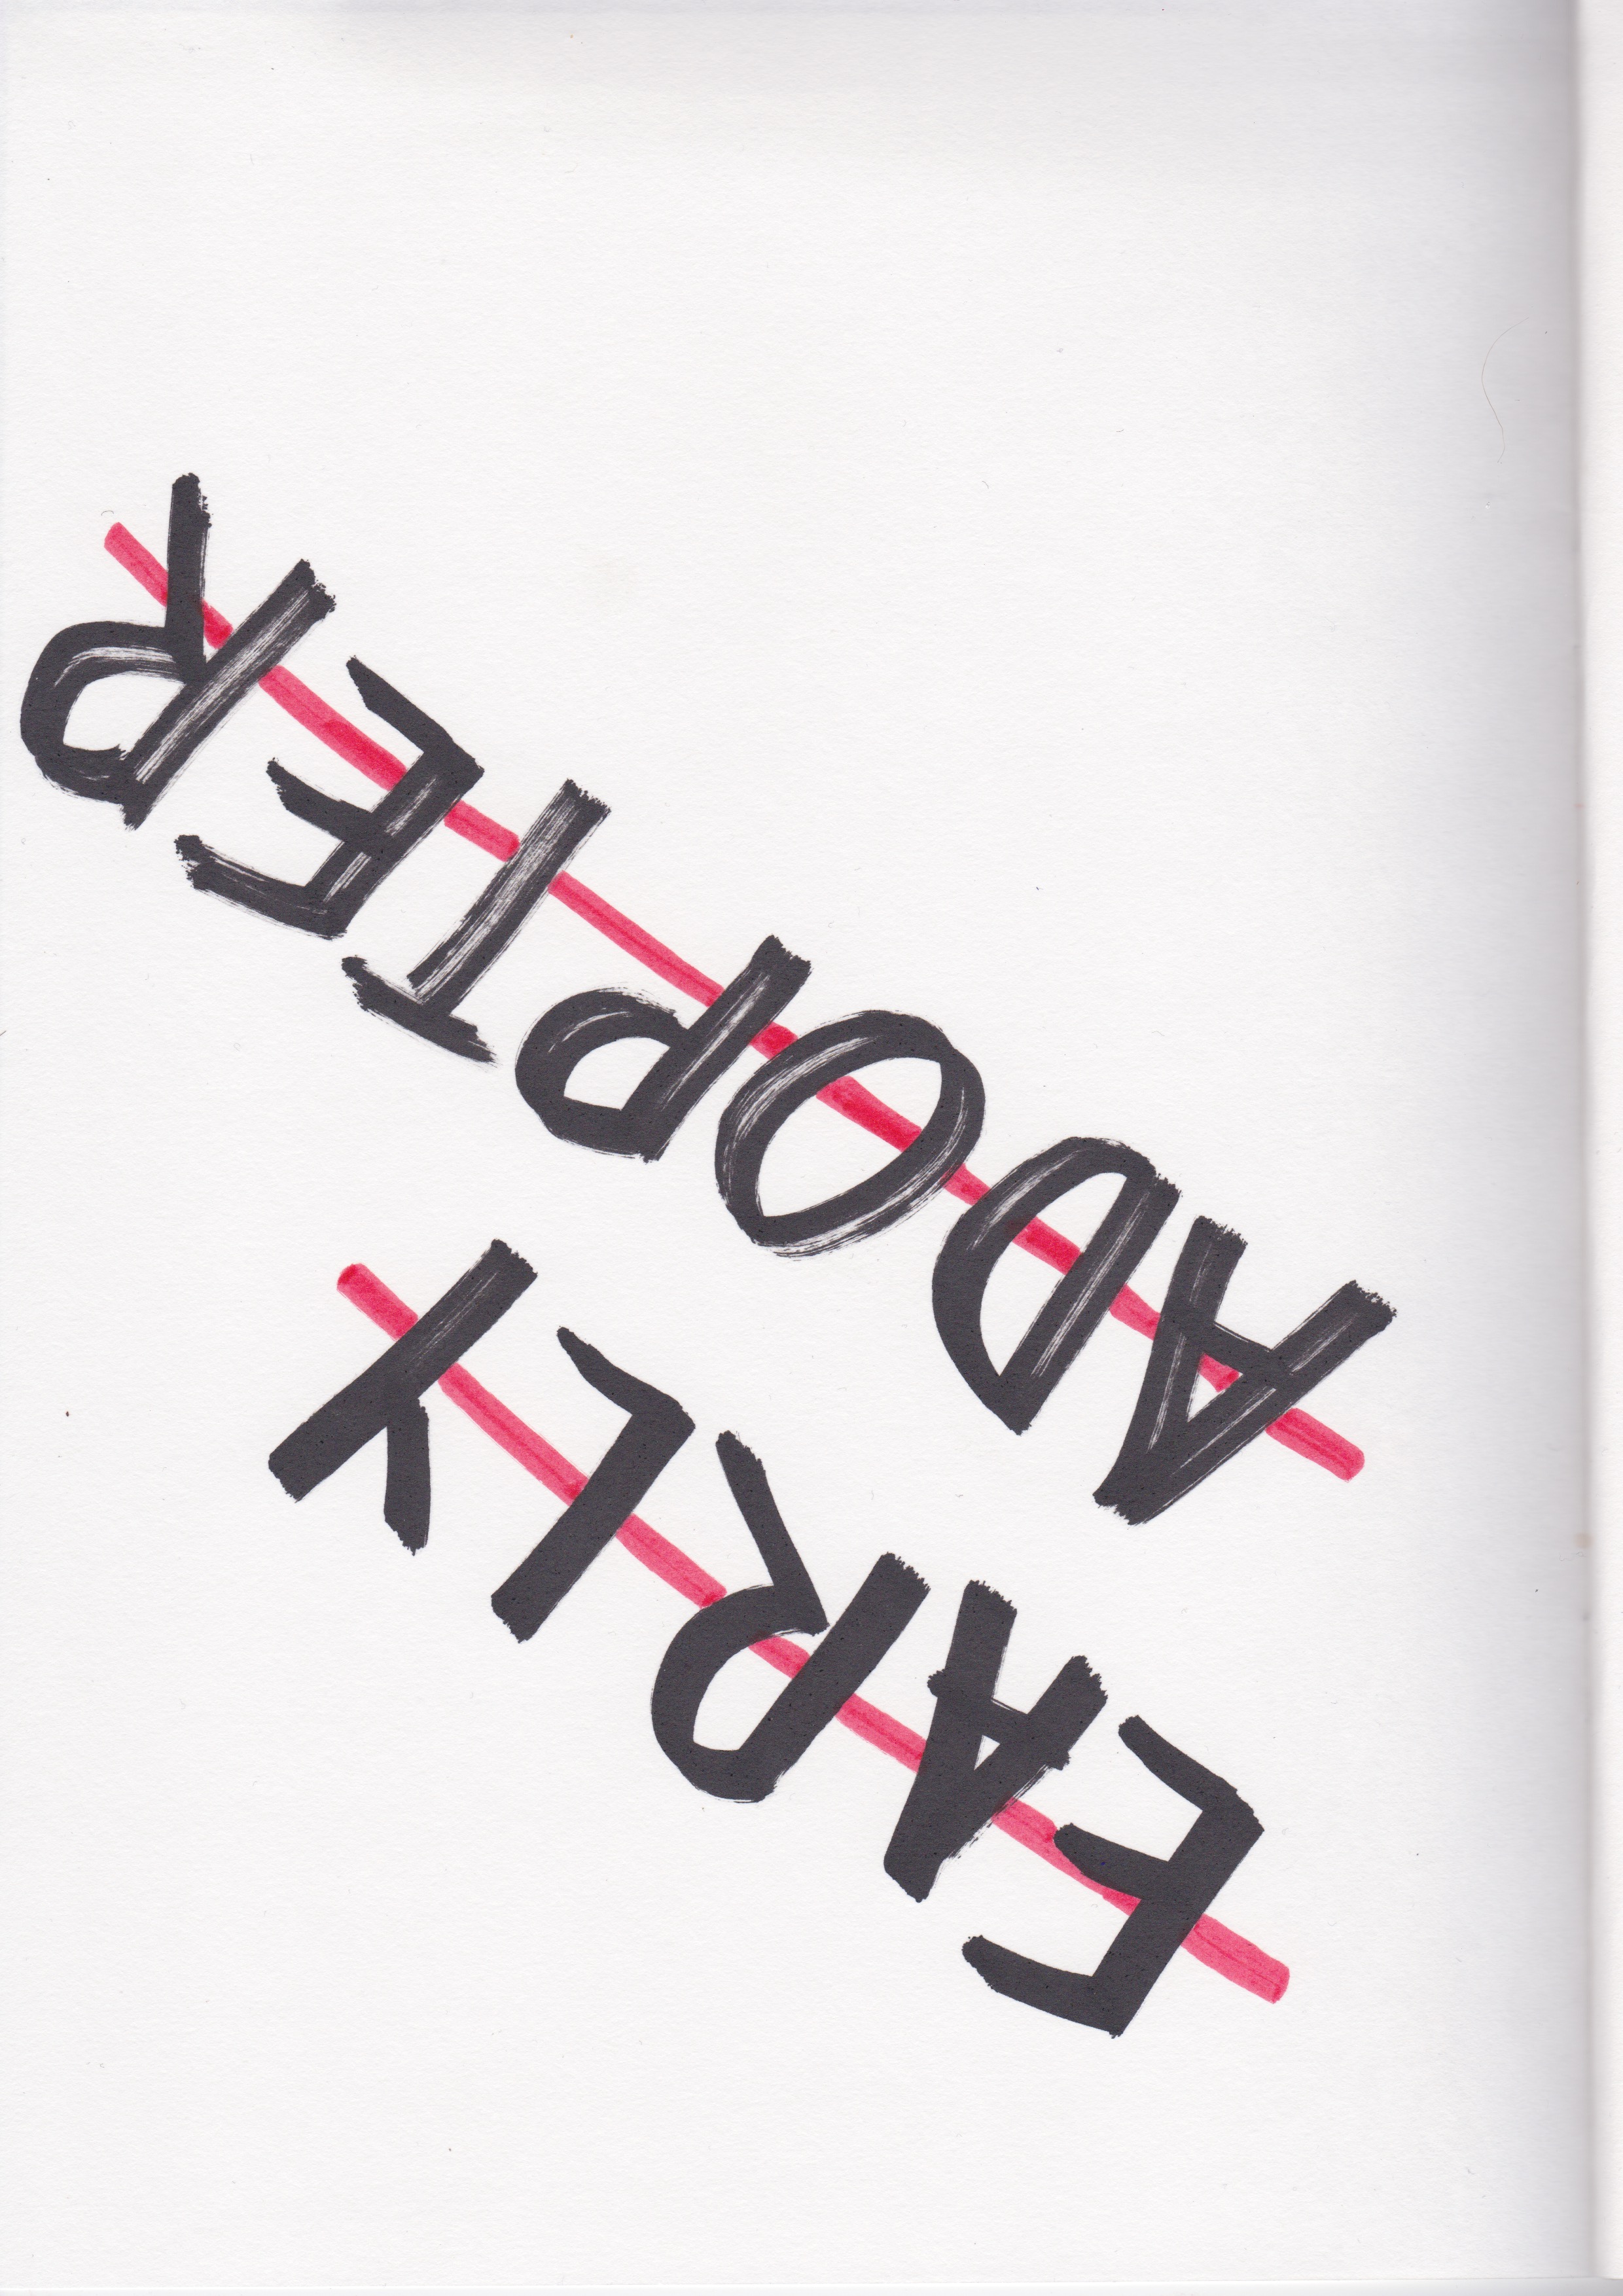 EARLY
ADOPTER